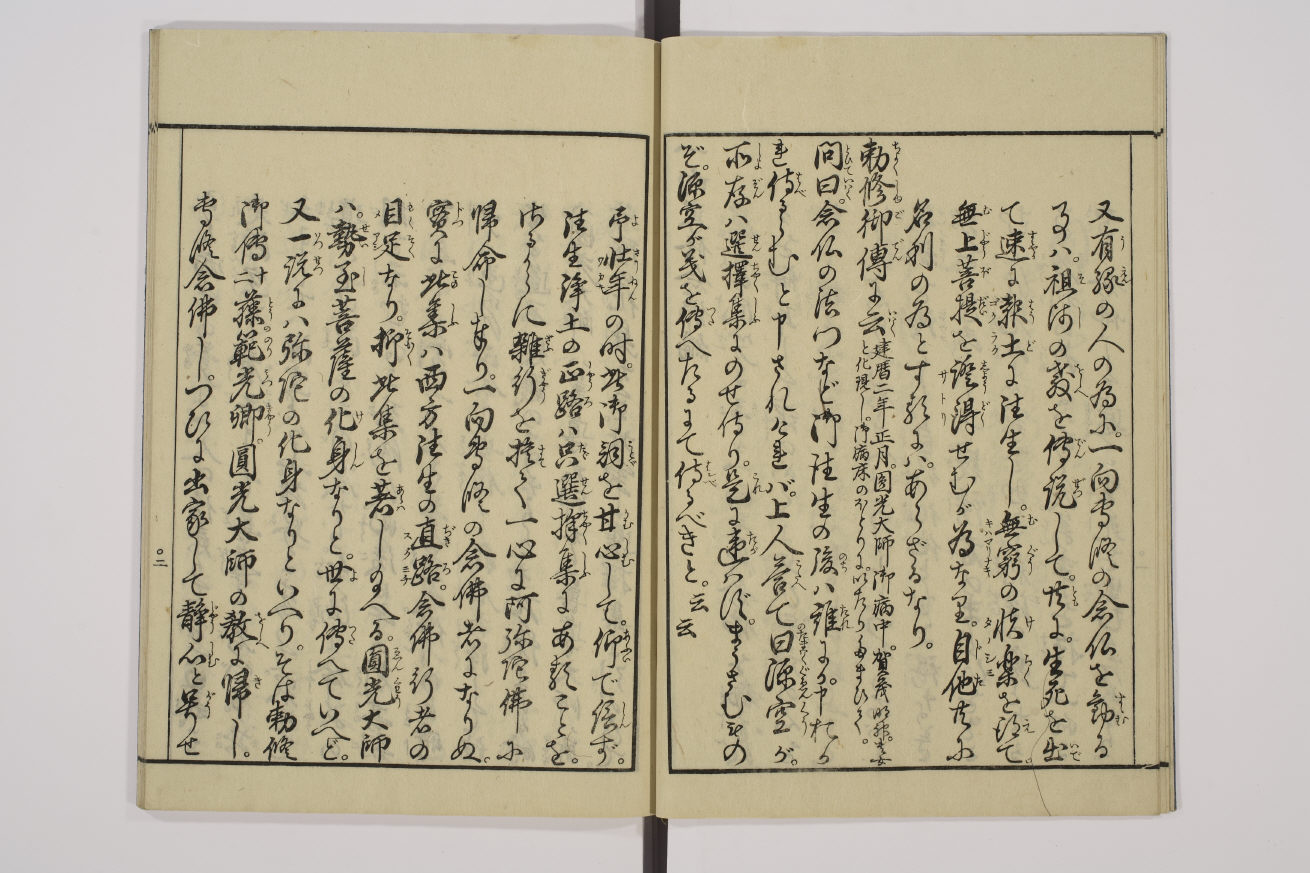 又有縁の人の為に。一向専修の念仏を勸る
事は。祖師の教を傳説して。共に。生死を出
て速に報土に往生し。無窮の快楽を得て
無上菩提を證得せむが為なり。自他共に
名利の為とするにはあらざるなり。
勅修御傳に云建暦二年正月。圓光大師御病中。賀茂明神貴女
と化現し。御病床のほとりにいたりたまひて。
問曰。念仏の法門など御往生の後は誰にか申おか
れ侍らむと申されければ。上人答て曰源空が
所存は選擇集にのせ侍り。是に違はず。まうさむもの
ぞ。源空が義を傳へたるにて侍べきと。云云
予壮年の時。此御詞を甘心して。仰で信ず。
往生浄土の正路は只選擇集にあることを。
はるかに雜行を捨て一心に阿弥陀佛に
帰命し奉り。一向専修の念佛者になりぬ。
實に此集は西方往生の直路。念佛行者の
目足なり。抑此集を著し給へる。圓光大師
は。勢至菩薩の化身なりと。世に傳へていへど。
又一説には弥陀の化身なりといへり。そは勅修
御傳二十藤範光卿。圓光大師の教に帰し。
専修念佛し。つひに出家して静心と号せ
〇二